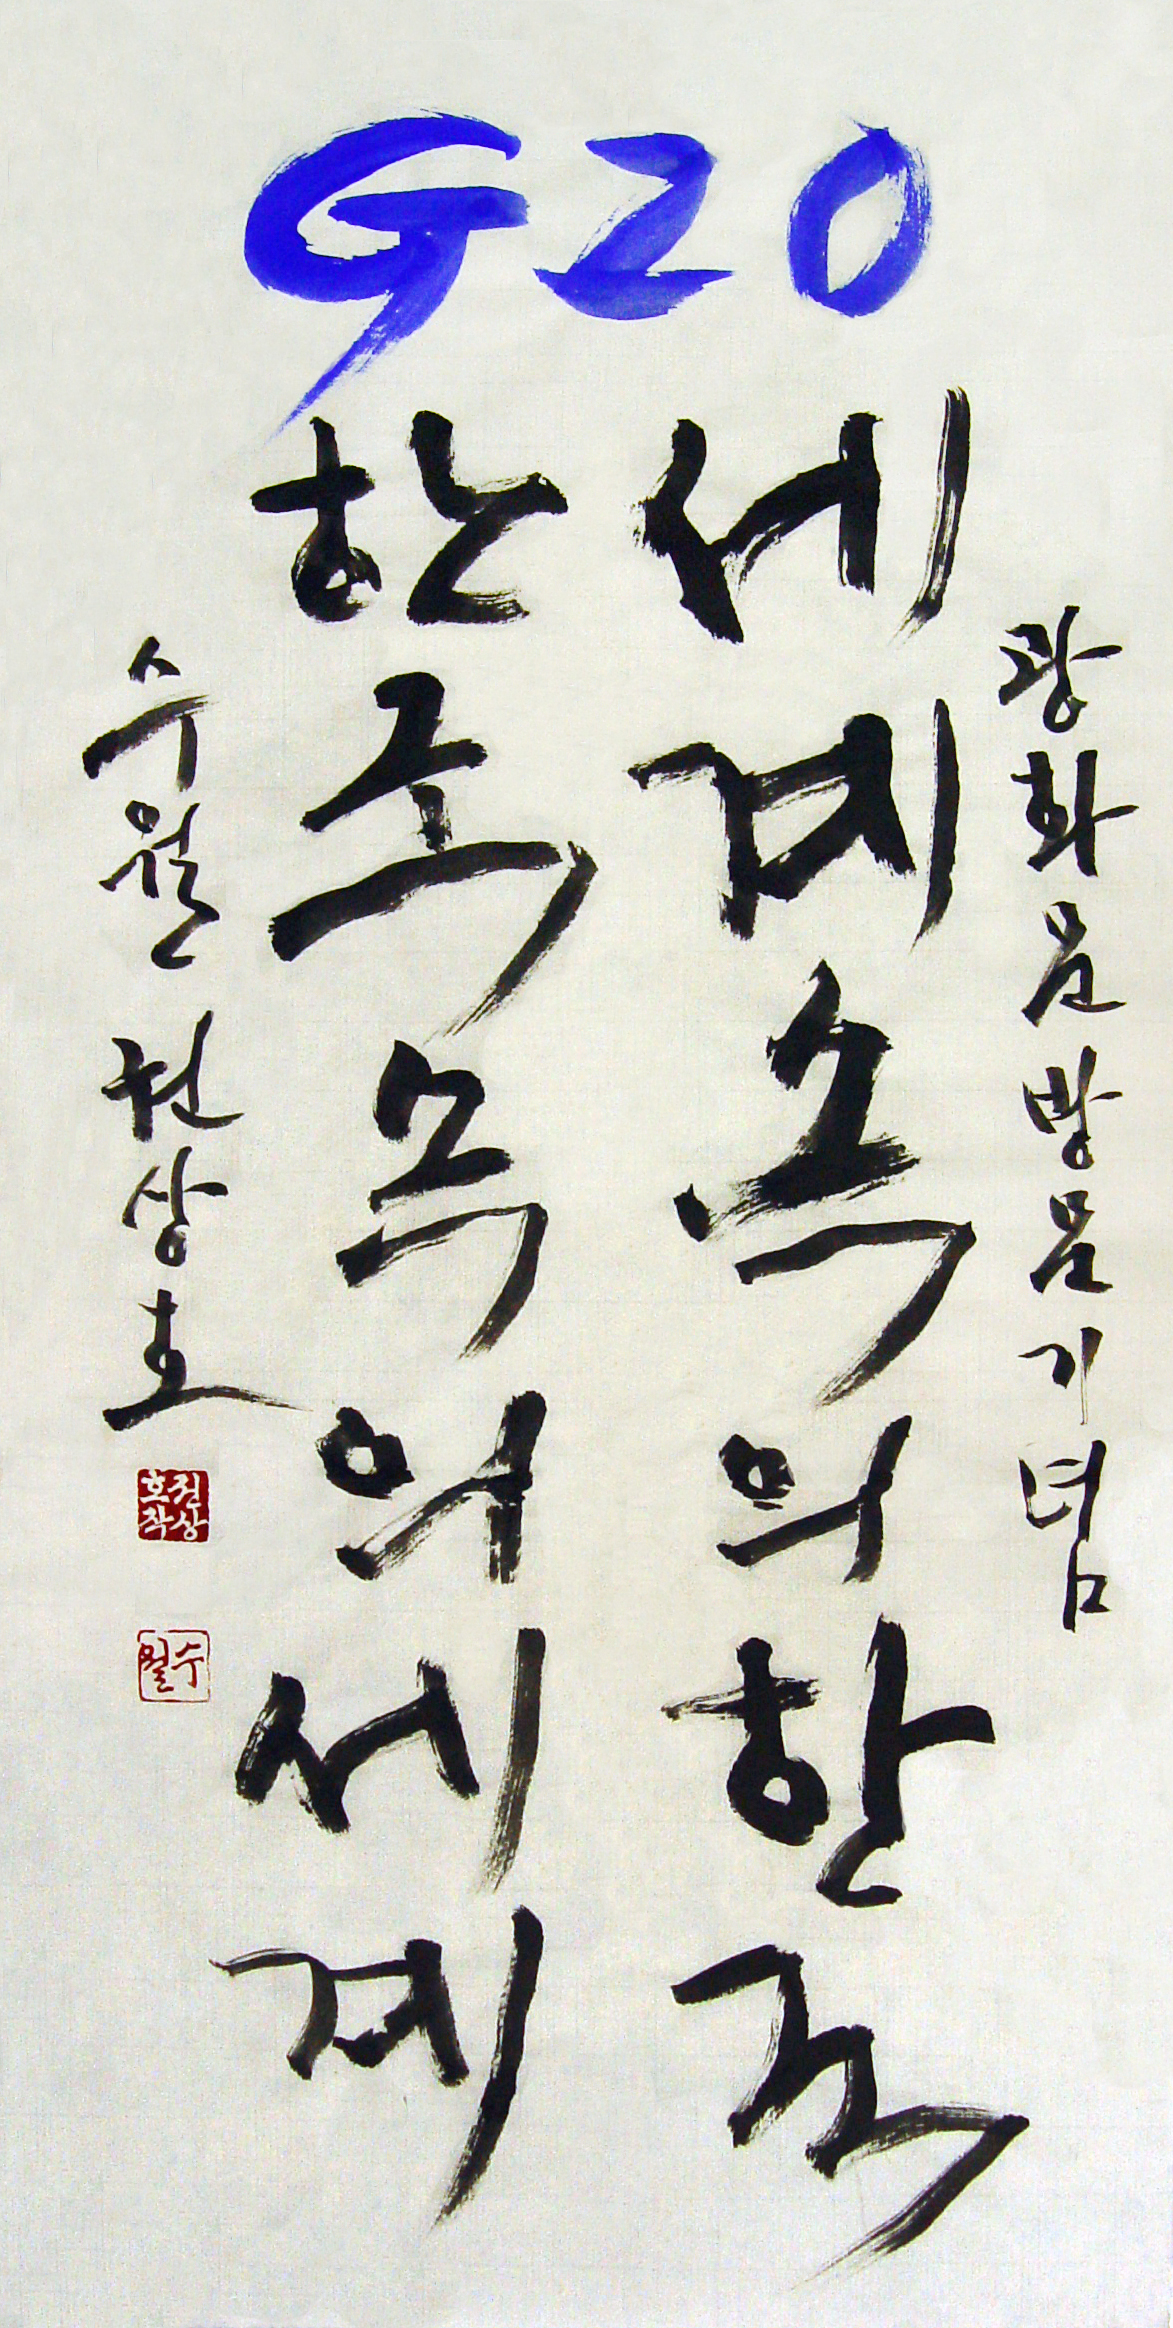 G20
광화문 방문 기념
세계 속의 한국
한국 속의 세계
수월 권상호
권상
호작
수월